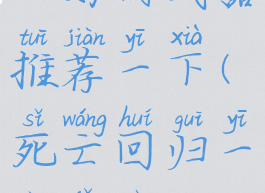 tuī jiàn yī xià
推荐一下(
sǐ wáng huí guī yī
死亡回归一